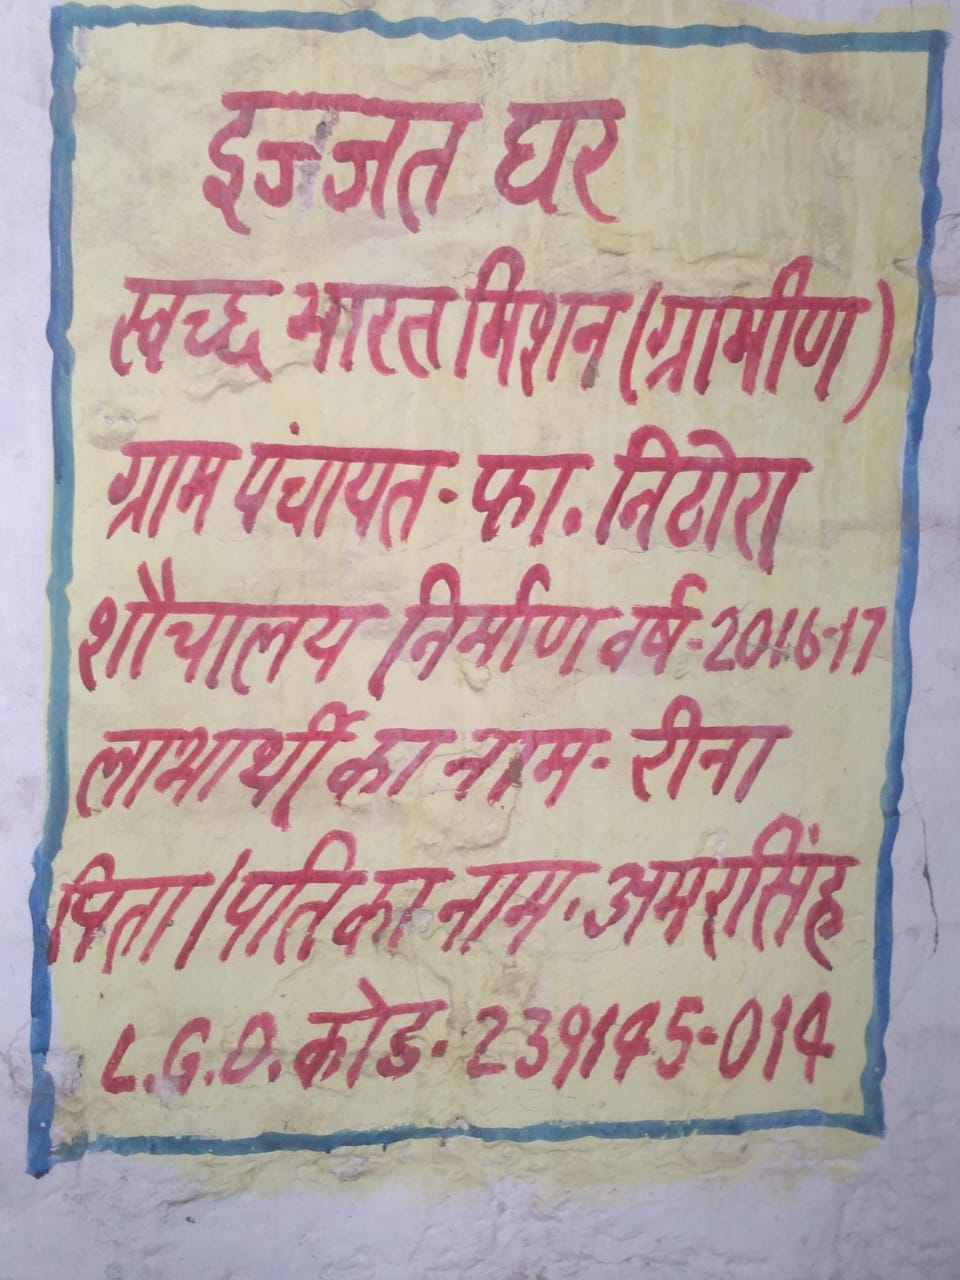 इज्जत घर
स्वच्छ भारत मिशन (ग्रामीण)
ग्राम पंचायत - फा. निठोरा
शौचालय निर्माण वर्ष - 2016-17
लाभार्थी का नाम - रीना
पिता / पति का नाम - अमरसिंह
L.G.D. कोड - 239145-014